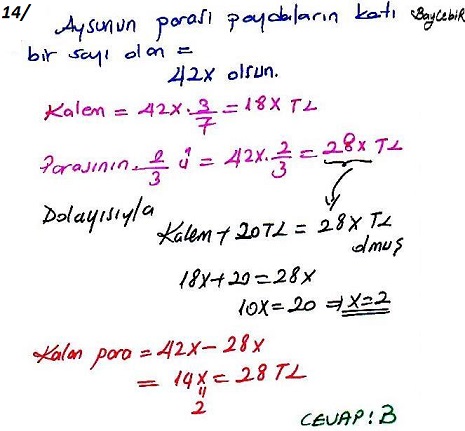 14/ Aysunun parası paydaların katı BayCebir
bir sayı olan =
42x olsun.
Kalem = 42x . 3/7 = 18x TL
Parasının 2/3 ü = 42x . 2/3 = 28x TL
Dolayısıyla
Kalem + 20TL = 28x TL
olmuş
18x + 20 = 28x
10x = 20 ⇒ x = 2
Kalan para = 42x - 28x
= 14x = 28 TL
"
2
CEVAP : B